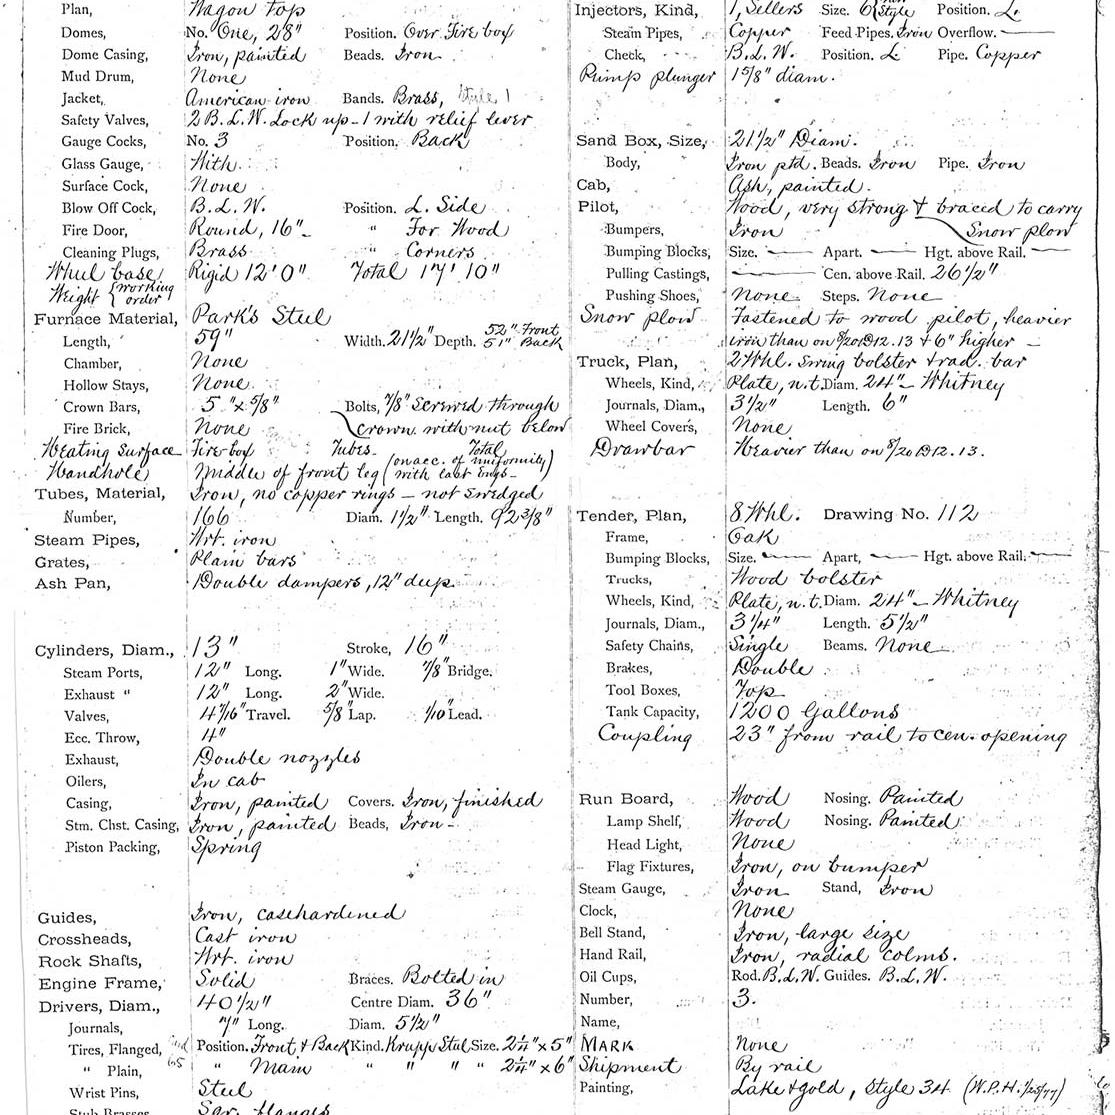 Plan, Wagon top
Domes, No. One, 28" Position. Over Fire box
Dome Casing, Iron, painted Beads. Iron
Mud Drum, None
Jacket, American iron Bands. Brass, style 1
Safety Valves, 2 B. L. W. Lock up - 1 with relief lever
Gauge Cocks, No. 3 Position. Back
Glass Gauge, With
Surface Cock, None
Blow Off Cock, B. L. W. Position. L. Side
Fire Door, Round, 16" " For Wood
Cleaning Plugs, Brass " Corners
Wheel base Rigid 12' 0" Total 17' 10"
Weight { working order
Furnace Material, Park's Steel
Length, 59" Width. 21 1/2" Depth. 52" Front 51" Back
Chamber, None
Hollow Stays, None
Crown Bars, 5" x 5/8" Bolts, 7/8" Screwed through
Fire Brick, None crown with nut below
Heating Surface Fire box Tubes Total
Handhole Middle of front leg (on acc. of uniformity with last Engs -)
Tubes, Material, Iron, no copper rings - not swedged
Number, 166 Diam. 1 1/2" Length. 92 3/8"
Steam Pipes, Wrt. iron
Grates, Plain bars
Ash Pan, Double dampers, 12" deep
Cylinders, Diam., 13" Stroke, 16"
Steam Ports, 12" Long. 1" Wide. 7/8" Bridge.
Exhaust " 12" Long. 2" Wide.
Valves, 4 7/16" Travel. 5/8" Lap. 1/10" Lead.
Ecc. Throw, 4"
Exhaust, Double nozzles
Oilers, In cab
Casing, Iron, painted Covers. Iron, finished
Stm. Chst. Casing, Iron, painted Beads, Iron -
Piston Packing, Spring
Guides, Iron, casehardened
Crossheads, Cast iron
Rock Shafts, Wrt. iron
Engine Frame, Solid Braces. Bolted in
Drivers, Diam., 40 1/2" Centre Diam. 36"
Journals, 7" Long. Diam. 5 1/2"
Tires, Flanged, Position. Front & Back Kind. Krupp Steel Size. 2 1/4" x 5"
" Plain, " Main " " " " 2 1/4" x 6"
Wrist Pins, Steel
Stub Brasses
Injectors, Kind, 1, Sellers Size. 6 Style Position. L.
Steam Pipes, Copper Feed Pipes. Iron Overflow. —
Check, B. L. W. Position. L Pipe. Copper
Pump plunger 1 5/8" diam.
Sand Box, Size, 21 1/2" Diam.
Body, Iron ptd. Beads. Iron Pipe. Iron
Cab, Ash, painted.
Pilot, Wood, very strong & braced to carry
Bumpers, Iron Snow plow
Bumping Blocks, Size. — Apart. — Hgt. above Rail. —
Pulling Castings, — Cen. above Rail. 26 1/2"
Pushing Shoes, None Steps. None
Snow plow Fastened to wood pilot, heavier
iron than on 8/20 D 12.13 & 6" higher -
Truck, Plan, 2 Whl. Swing bolster & rad. bar
Wheels, Kind, Plate, n.t. Diam. 24" - Whitney
Journals, Diam., 3 1/2" Length. 6"
Wheel Covers, None
Drawbar Heavier than on 8/20 D 12.13.
Tender, Plan, 8 Whl. Drawing No. 112
Frame, Oak
Bumping Blocks, Size. — Apart, — Hgt. above Rail. —
Trucks, Wood bolster
Wheels, Kind, Plate, n.t. Diam. 24" - Whitney
Journals, Diam., 3 1/4" Length. 5 1/2"
Safety Chains, Single Beams. None
Brakes, Double
Tool Boxes, Top
Tank Capacity, 1200 Gallons
Coupling 23" from rail to cen. opening
Run Board, Wood Nosing. Painted
Lamp Shelf, Wood Nosing. Painted
Head Light, None
Flag Fixtures, Iron, on bumper
Steam Gauge, Iron Stand, Iron
Clock, None
Bell Stand, Iron, large size
Hand Rail, Iron, radial colms.
Oil Cups, Rod. B. L. W. Guides. B. L. W.
Number, 3.
Name,
MARK None
Shipment By rail
Painting, Lake & gold, Style 34 (W.P.H. 1/25/77)